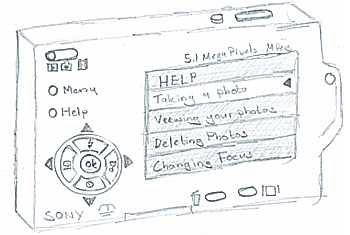 5.1 MegaPixels MPEG
HELP
Taking a photo
Veewing your photos
Deleting Photos
Changing Focus
Menu
Help
OK
SONY